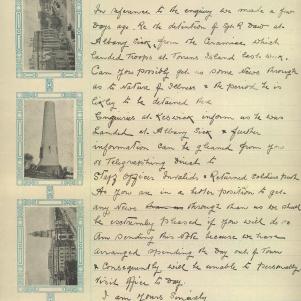 In reference to the enquiry we made a few
Days ago. Re the detention of Spr R Daw at
Albany Sick, from the Ceramic which
Landed Troops at Towns Island Early wick.
Can you possibly get us some News through
as to Nature of Illness & the period he is
likely to be detained there
Enquiries at Keswick inform us he was
Landed at Albany Sick & further
information can be gleaned from you
or Telegraphing Direct to
Staff Officer Invalids & Returned Soldiers Perth
As you are in a better position to get
any News through than us we shall
be extremely pleased if you will do so
Am sending this Note because we have
arranged spending the day out of Town
& Consequently will be unable to personally
Visit Office to Day.
I am Yours Sincerely